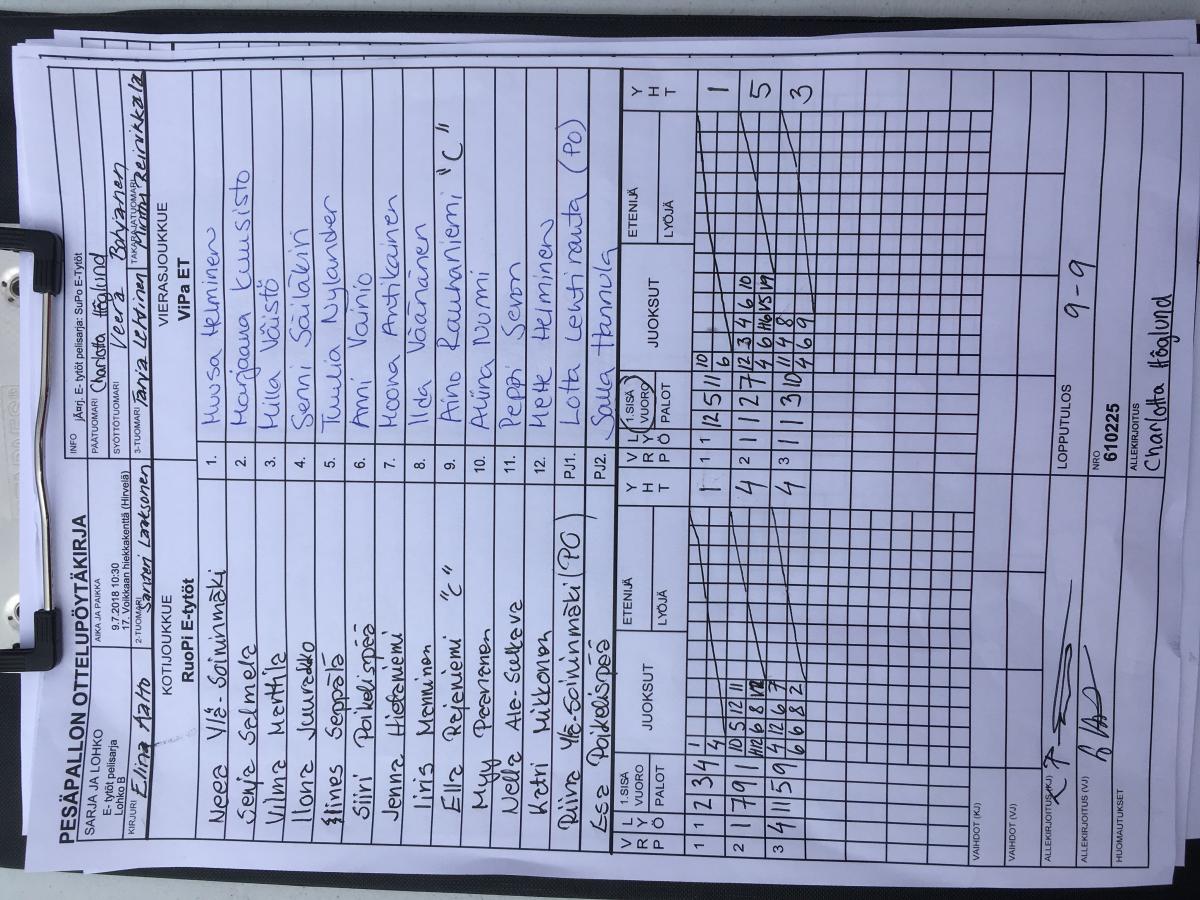 PESÄPALLON OTTELUPÖYTÄKIRJA
SARJA JA LOHKO
E- tytöt pelisarja
Lohko B
AIKA JA PAIKKA
9.7.2018 10:30
17. Voikkaan hiekkakenttä (Hirvelä)
INFO JÄrrj. E- tytöt pelisarja: SuPo E-Tytöt
PÄÄTUOMARI Charlotta Höglund
SYÖTTÖTUOMARI Veera Pohjanen
KIRJURI Elina Aalto
2-TUOMARI Santeri Laaksonen
3-TUOMARI Tanja Lehtinen
TAKARAJATUOMARI Minttu Reinikkala
KOTIJOUKKUE
RuoPi E-tytöt
VIERASJOUKKUE
ViPa ET
Neea Ylä-Soininmäki 1. Muusa Helminen
Senja Salmela 2. Marjaana Kuusisto
Vilma Marttila 3. Milla Väistö
Ilona Juurakko 4. Senni Säiläkivi
Eines Seppälä 5. Tuulia Nylander
Siiri Poikelispää 6. Anni Vainio
Jenna Hietaniemi 7. Moona Antikainen
Iiris Manninen 8. Iida Väänänen
Ella Rajaniemi "C" 9. Aino Rauhaniemi "C"
Myy Paananen 10. Aliina Nurmi
Nella Ala-Sulkava 11. Peppi Sevon
Katri Mikkonen 12. Mette Helminen
Riina Ylä-Soininmäki (PO) PJ1. Lotta Lehtiranta (PO)
Esa Poikelispää PJ2. Salla Hannula
V R P L Y Ö 1.SISÄ VUORO PALOT JUOKSUT ETENIJÄ LYÖJÄ Y H T V R P L Y Ö 1.SISÄ VUORO PALOT JUOKSUT ETENIJÄ LYÖJÄ Y H T
1 1 2 3 4 1 4 1 1 1 12 5 11 10 6 1
2 1 7 9 1 10 5 12 11 4 2 1 1 2 7 12 3 4 6 10 5
3 4 11 5 9 4 12 6 7 6 6 8 2 4 3 1 1 3 10 11 4 8 4 6 9 3
VAIHDOT (KJ)
VAIHDOT (VJ)
LOPPUTULOS 9-9
ALLEKIRJOITUS (KJ)
ALLEKIRJOITUS (VJ)
NRO
610225
HUOMAUTUKSET
ALLEKIRJOITUS
Charlotta Höglund